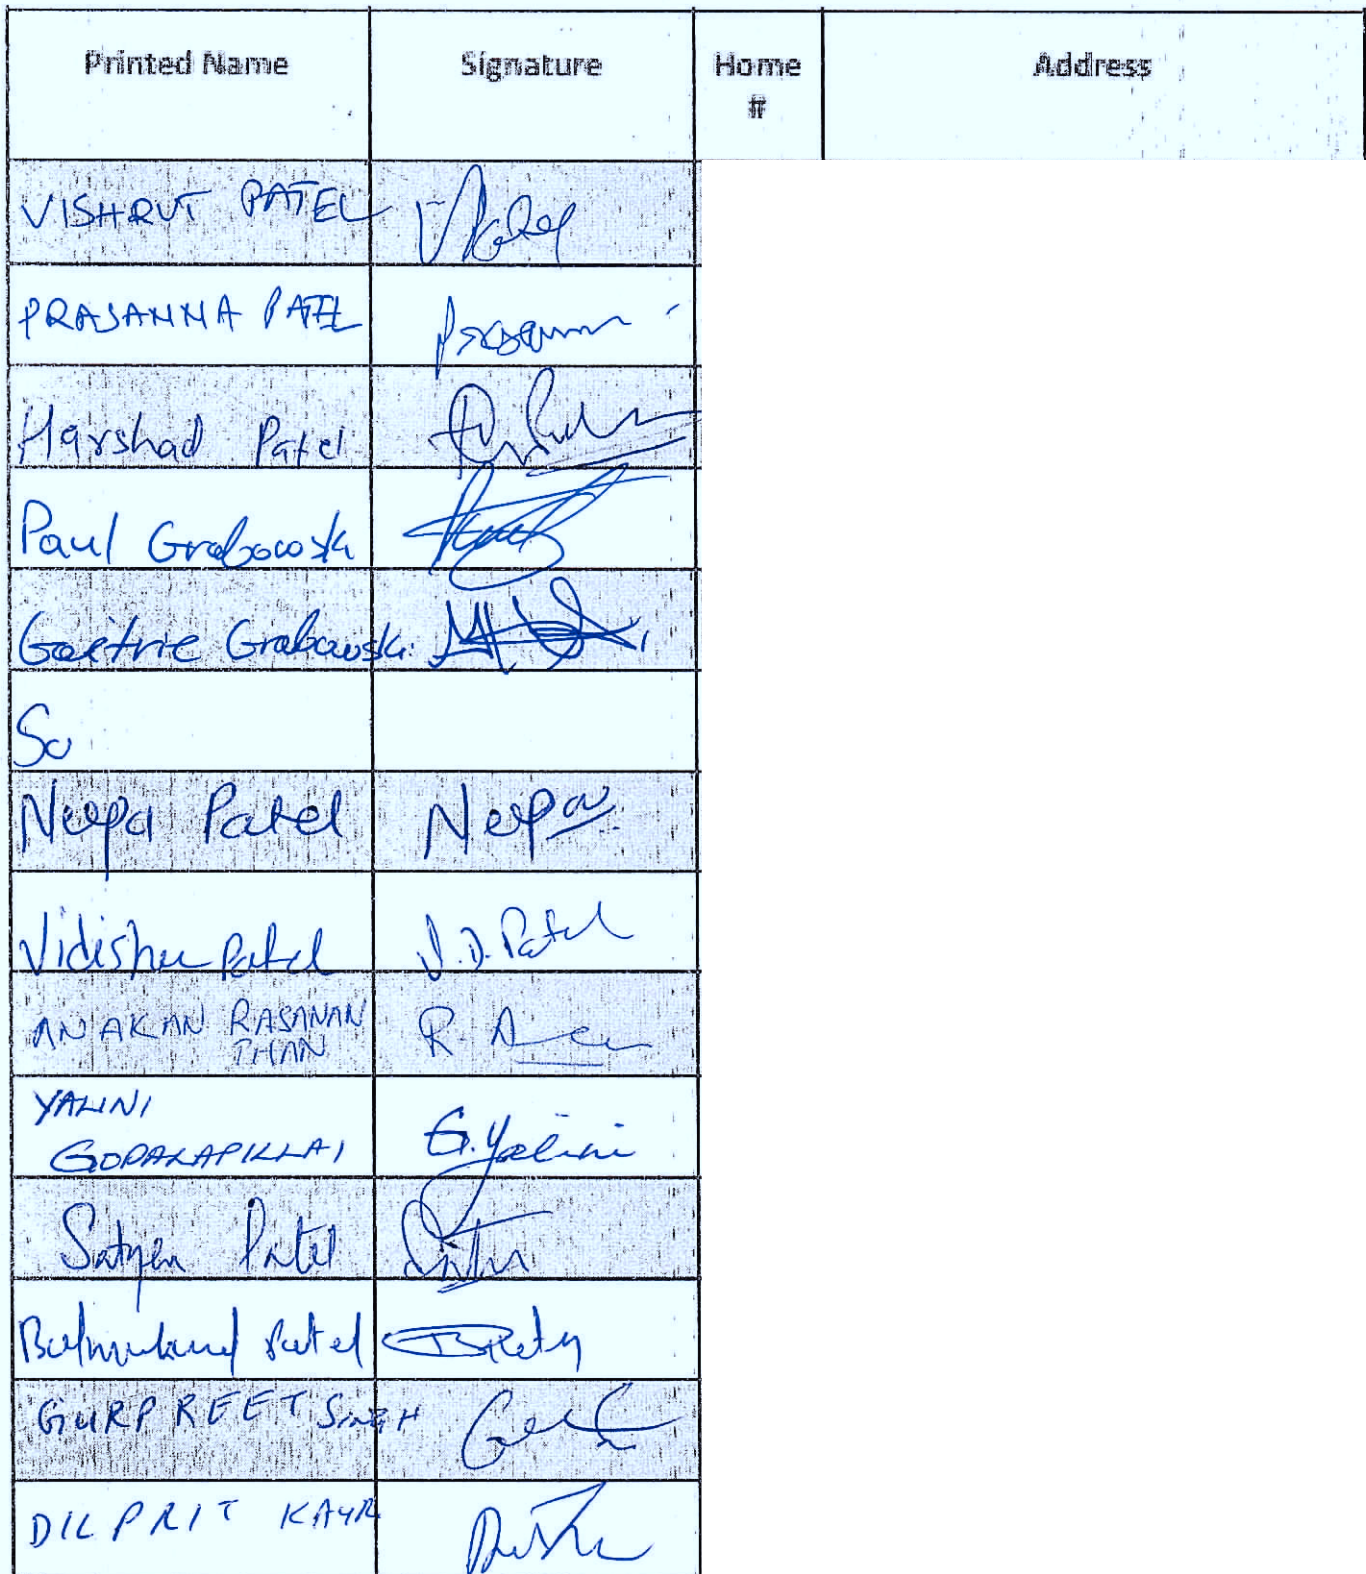 Printed Name Signature Home # Address
VISHRUT PATEL VPatel
PRASANNA PATEL Prasanna
Harshad Patel
Paul Grabowski
Gaetrie Grabowski
So
Neepa Patel Neepa
Vidisha Patel V.D. Patel
ANAKAN RASANAN
THAN R.
YALINI
GOPALAPILLAI G. Yalini
Satyen Patel
Balmukund Patel
GURPREET SINGH
DILPRIT KAUR